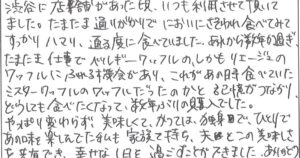 渋谷に店舗があった頃、いつも利用させて頂いて
ました。たまたま通りがかりでにおいにさそわれ食べてみて
すっかりハマり、通る度に食べていました。あれから数年が過ぎ、
たまたま仕事でベルギーワッフルのしかもリエージュの
ワッフルにふれる機会があり、これがあの時食べていた
ミスターワッフルのワッフルだったのかと記憶がつながり
どうしても食べたくなって、数年ぶりの購入でした。
やっぱり変わらず美味しくて、かつては独身の日で、ひとりで
あの味を楽しんでた私も家族で持ち、夫とこの美味しさ
を共有でき、幸せな1日を過ごすことができました。ありがと